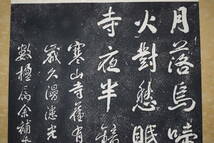 月落烏啼
火對愁眠
寺夜半
寒山寺舊有
歲久漫漶光
數楹屬余補書